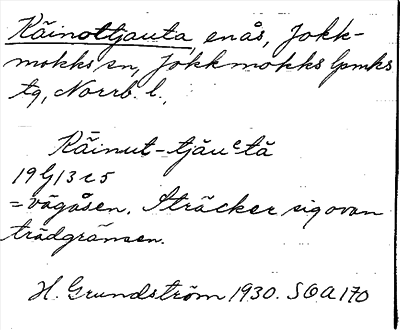 Käinottjauta, enås, Jokk-
mokks sn, Jokkmokks lpmks
tg, Norrb. l.,
Käinut-tjäuᶜtā
19 G 13 c 5
= vägåsen. Sträcker sig ovan
trädgränsen.
H. Grundström 1930. SOA 170